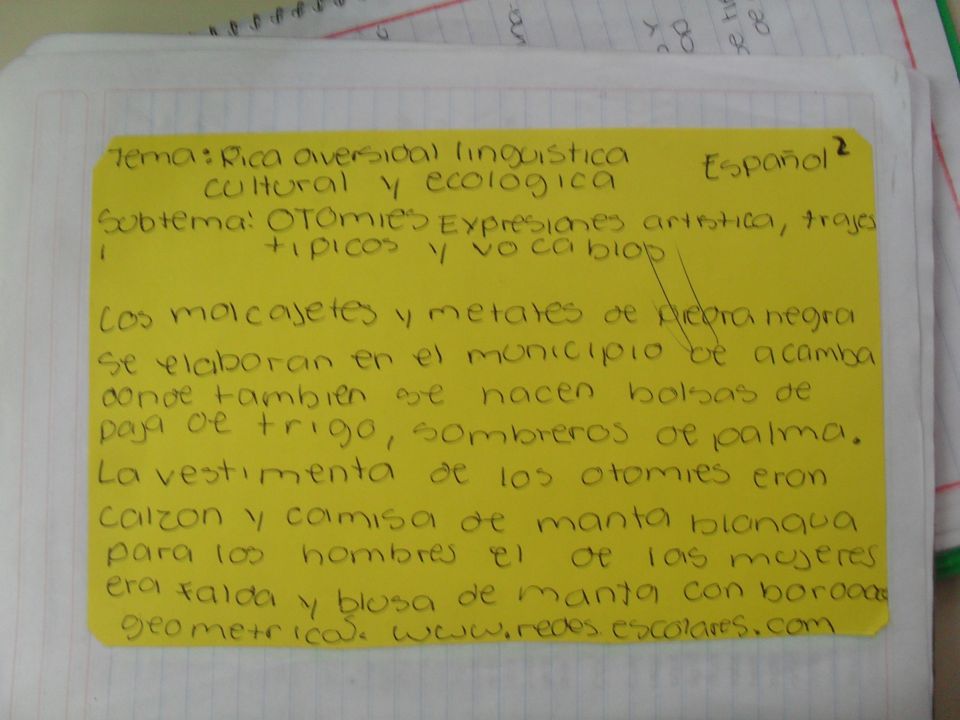 Tema: Rica diversidal linguistica
Español 2
cultural y ecologica
Subtema: OTOMIES Expresiones artistica, trajes
tipicos y vocablos
Los molcajetes y metates de piedra negra
se elaboran en el municipio de acamba
donde tambien se hacen bolsas de
paja de trigo, sombreros de palma.
La vestimenta de los otomies eran
calzon y camisa de manta blanqua
para los hombres el de las mujeres
era falda y blusa de manta con
geometricas. www.redes.escolares.com